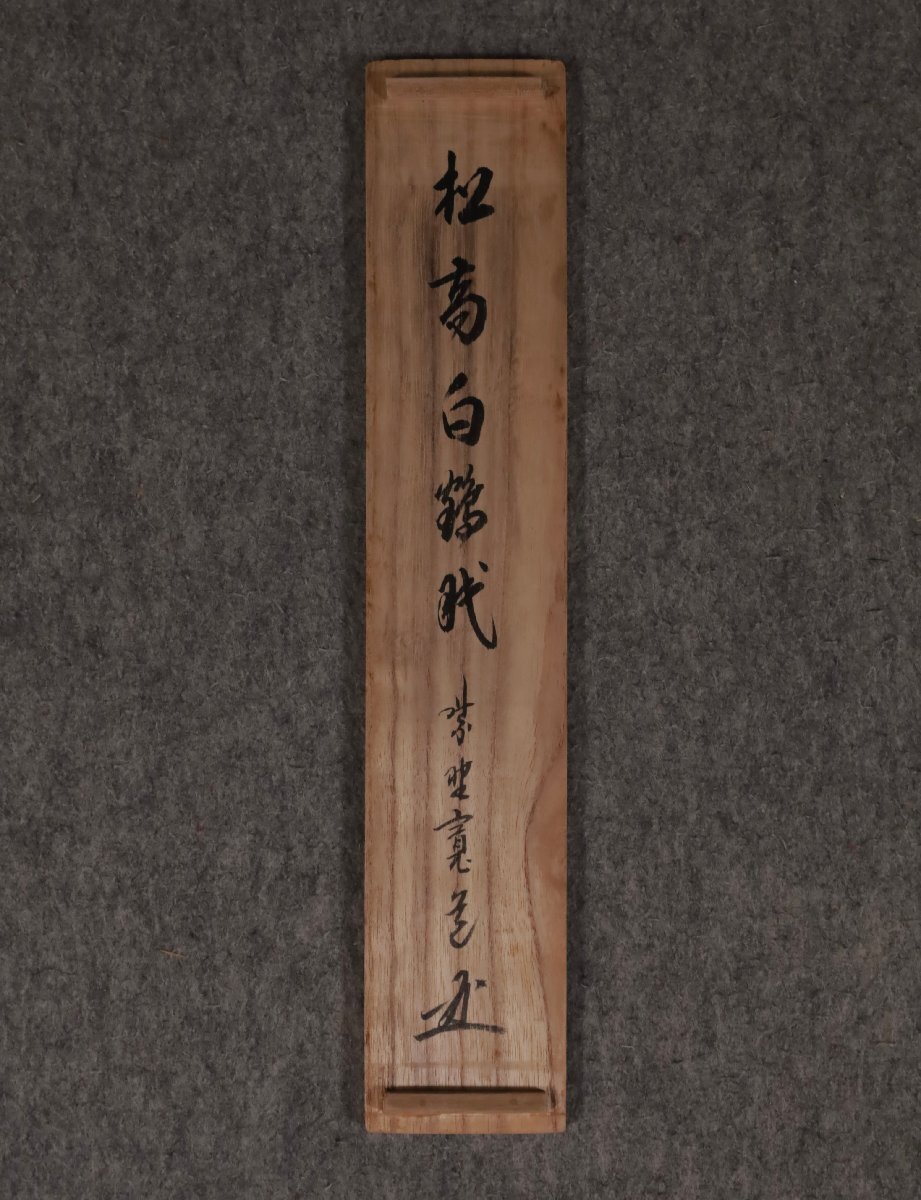 松高白鶴眠 紫野寛道